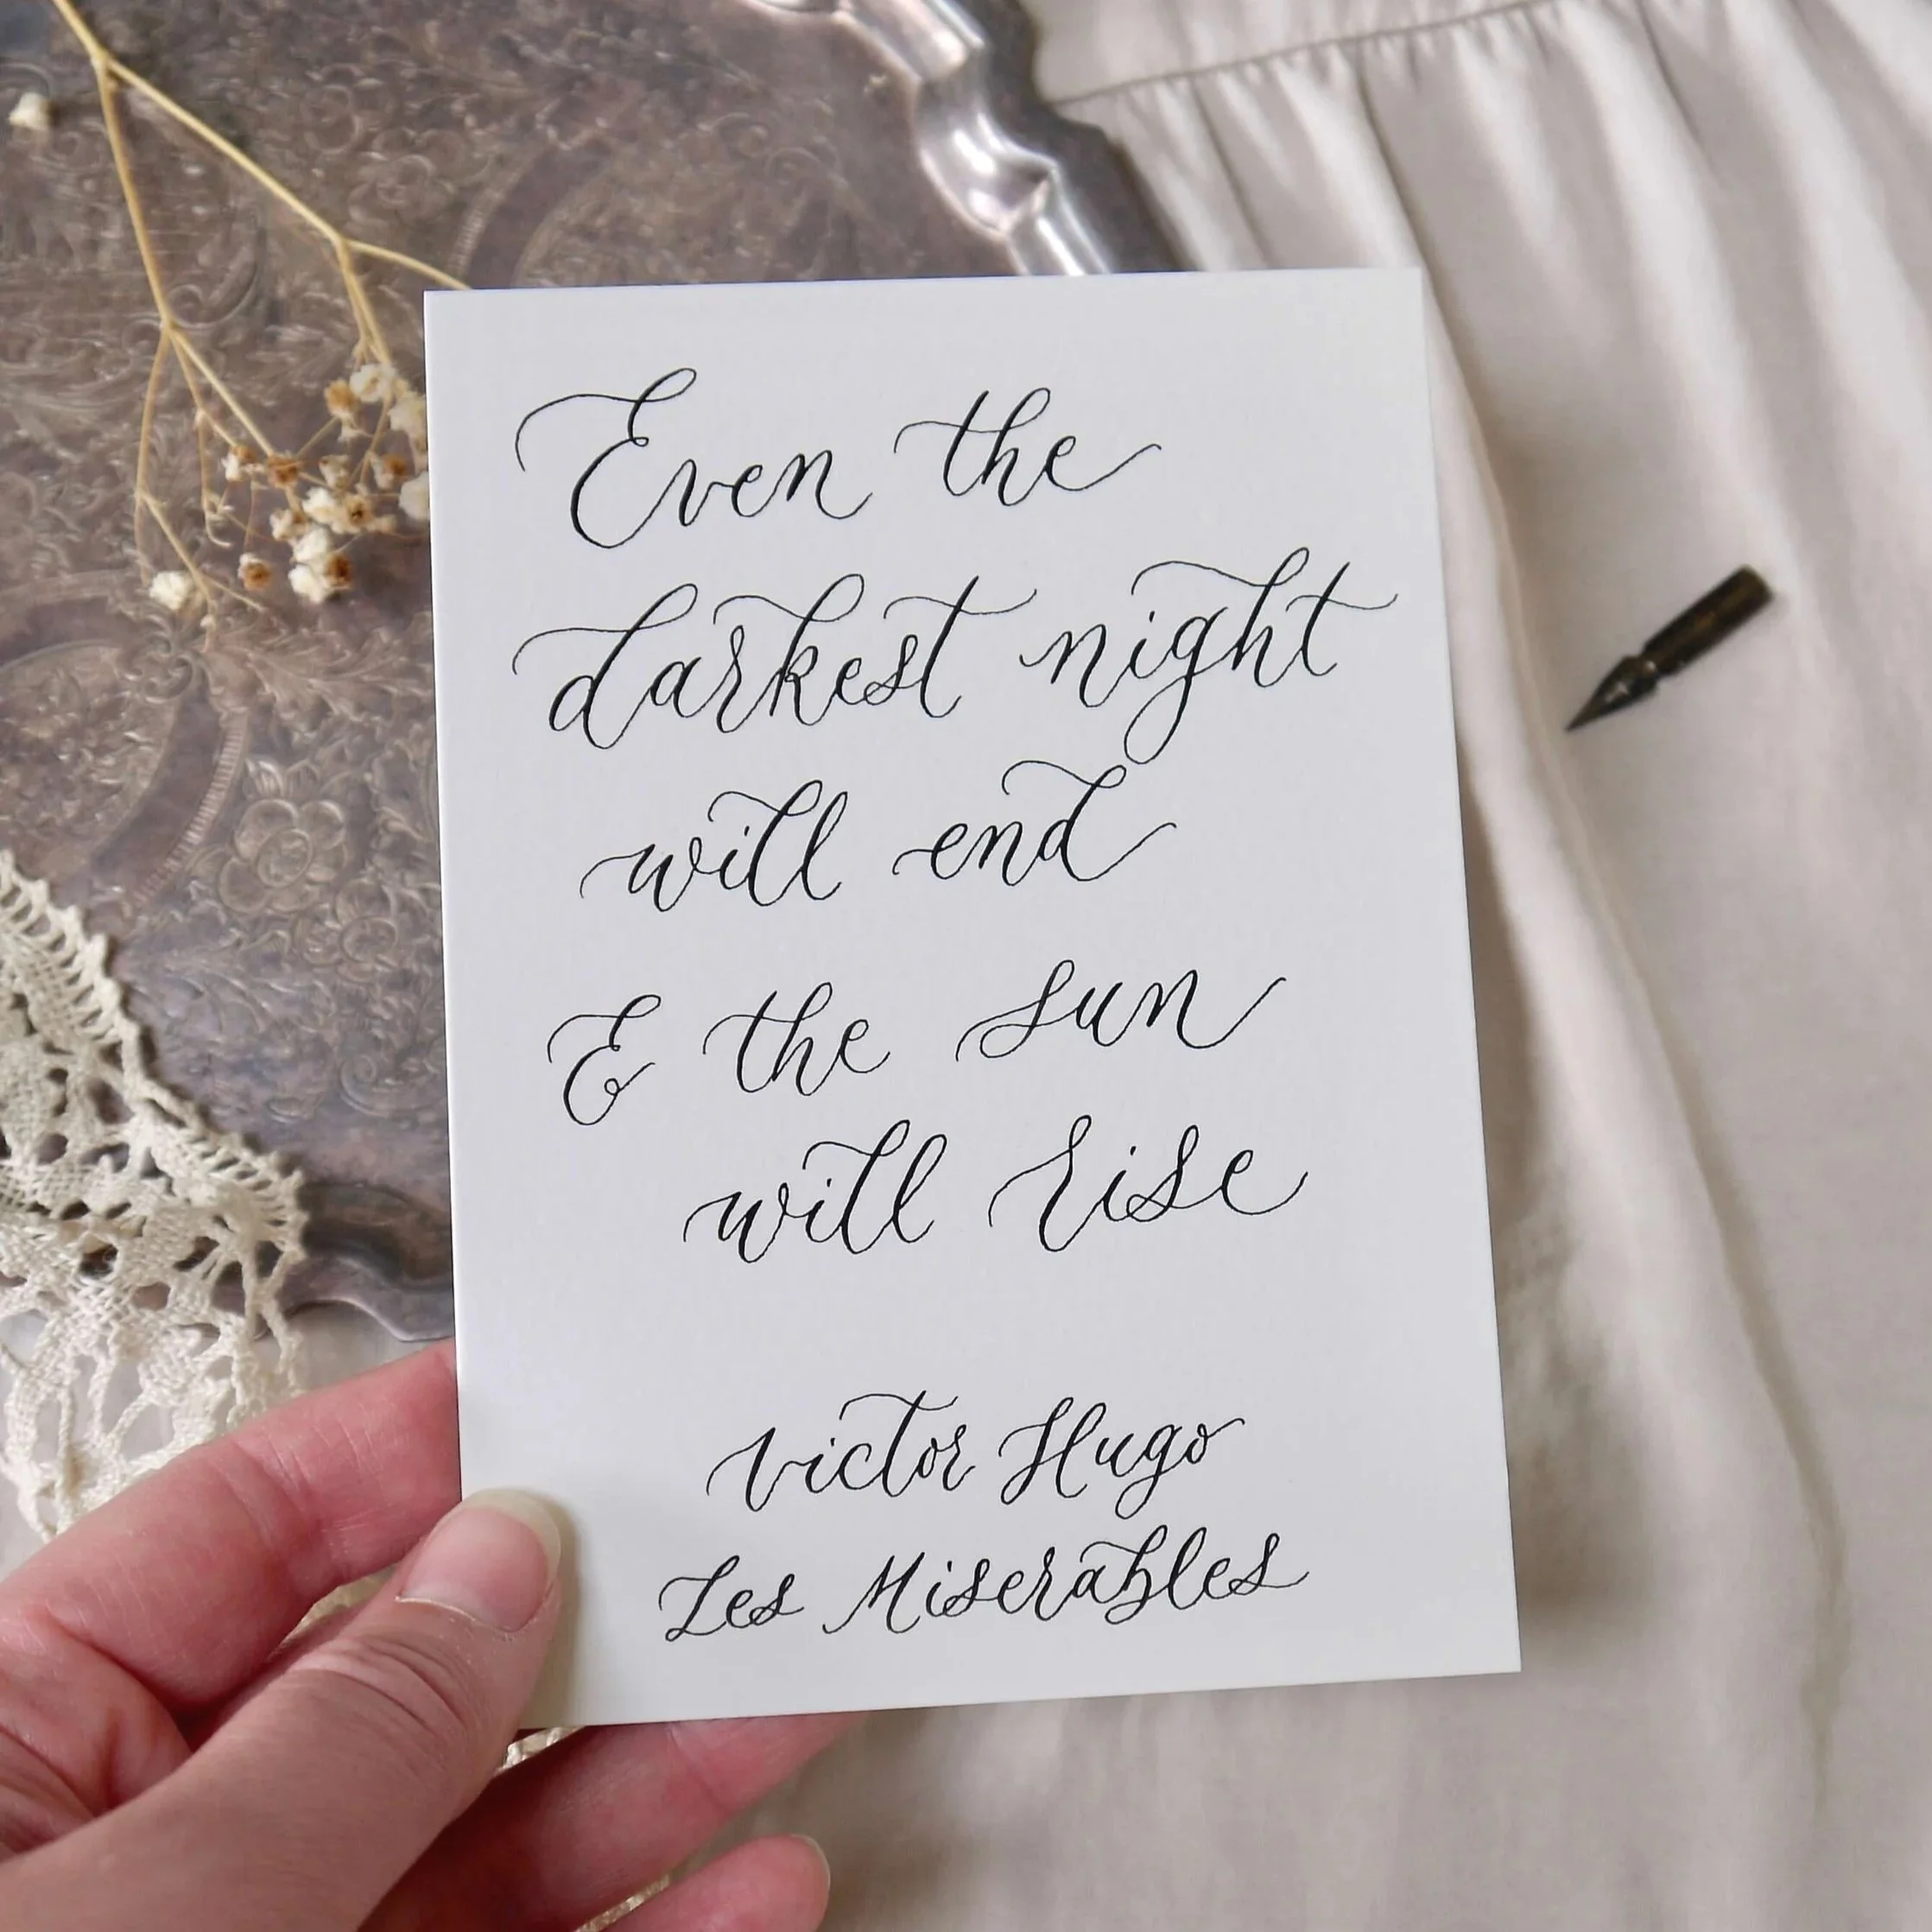 Even the
darkest night
will end
& the sun
will rise
Victor Hugo
Les Miserables